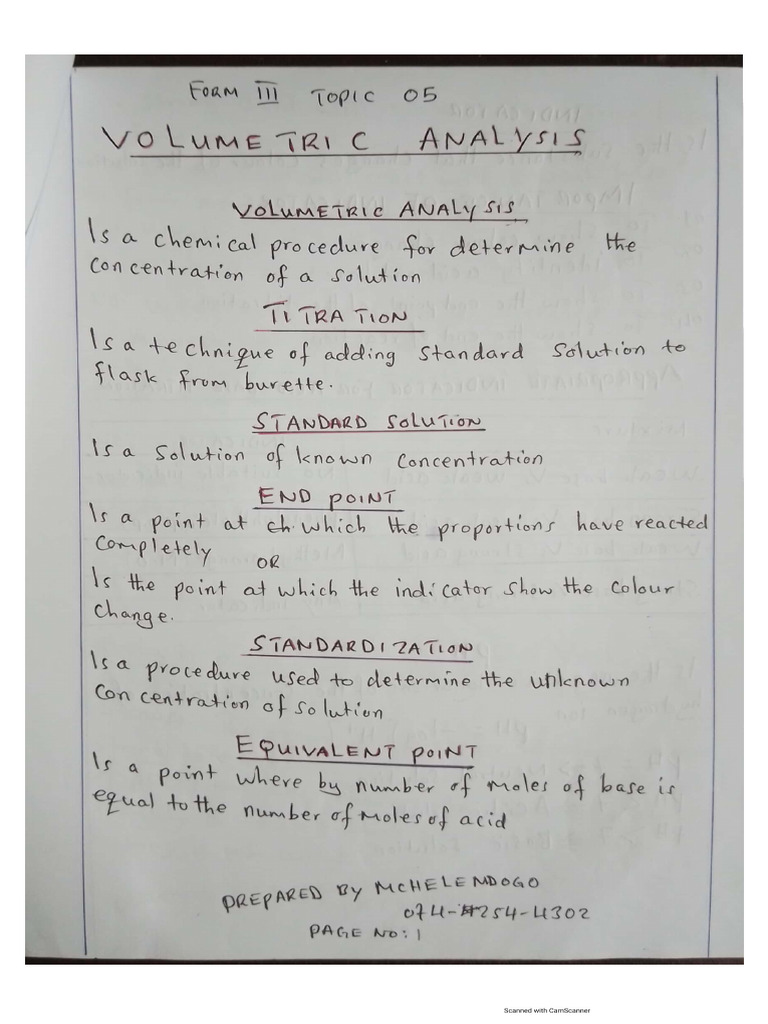 FORM III TOPIC 05
VOLUMETRIC ANALYSIS
VOLUMETRIC ANALYSIS
Is a chemical procedure for determine the
concentration of a solution
TITRATION
Is a technique of adding standard solution to
flask from burette.
STANDARD SOLUTION
Is a solution of known concentration
END POINT
Is a point at which the proportions have reacted
completely OR
Is the point at which the indicator show the colour
change.
STANDARDIZATION
Is a procedure used to determine the unknown
concentration of solution
EQUIVALENT POINT
Is a point where by number of moles of base is
equal to the number of moles of acid
PREPARED BY MCHELENDOGO
074-4254-4302
PAGE NO: 1
Scanned with CamScanner